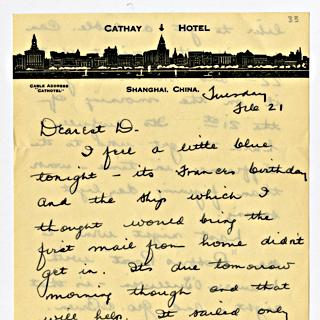 33
CATHAY HOTEL
CABLE ADDRESS
"CATHOTEL"
SHANGHAI, CHINA,
Tuesday
Feb 21
Dearest D.
I feel a little blue
tonight - its Frances birthday
and the ship which I
thought would bring the
first mail from home didn't
get in. Its due tomorrow
morning though and that
will help. It sailed only